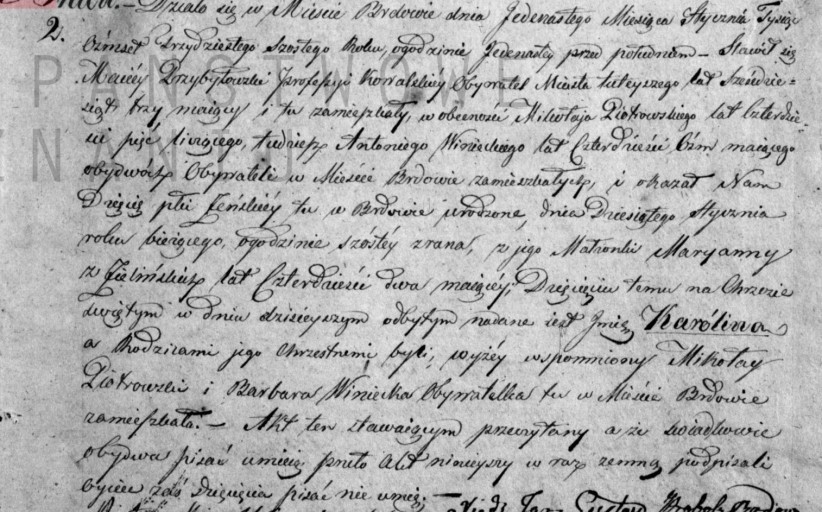 Działo się w Mieście Brdowie dnia Jedenastego Miesiąca Stycznia Tysiąc
2. Ośmset Trzydziestego Szóstego Roku, ogodzinie Jedenastey przed południem – Stawił się
Maciey Przybyłowski Professyi Kowalskiey Obywatel Miasta tuteyszego lat Sześćdzie-
siąt trzy maiący i tu zamieszkały, w obecności Mikołaja Piotrowskiego lat Czterdzie-
ści pięć liczącego, tudzież Antoniego Winieckiego lat Czterdzieści Ośm maiącego
obydwóch Obywateli w Mieście Brdowie zamieszkałych, i okazał Nam
Dziecię płci Żeńskiey tu w Brdowie urodzone, dnia Dziesiątego Stycznia
roku bieżącego, ogodzinie szóstey zrana, z jego Małżonki Maryanny
z Zielińskich lat Czterdzieści dwa maiącey; Dziecięciu temu na Chrzcie
świętym w dniu dzisieyszym odbytym nadane iest Imię Karolina
a Rodzicami jego Chrzestnemi byli, wyżey wspomniony Mikołay
Piotrowski i Barbara Winiecka Obywatelka tu w Mieście Brdowie
zamieszkała. – Akt ten stawaiącym przeczytany a że świadkowie
obydwa pisać umieią, Akt ninieyszy w raz zemną podpisali
oyciec zaś Dziecięcia pisać nie umie. –